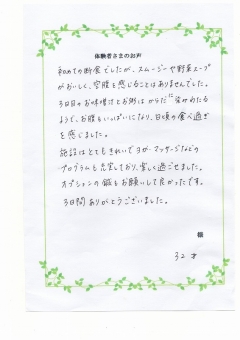 体験者さまのお声
初めての断食でしたが、スムージーや野菜スープ
がおいしく、空腹を感じることはありませんでした。
3日目のお味噌汁とお粥はからだに染みわたる
ようで、お腹もいっぱいになり、日頃の食べ過ぎ
を感じました。
施設はとてもきれいでヨガ・マッサージなどの
プログラムも充実しており、楽しく過ごせました。
オプションの鍼もお願いして良かったです。
3日間ありがとうございました。
様
32才